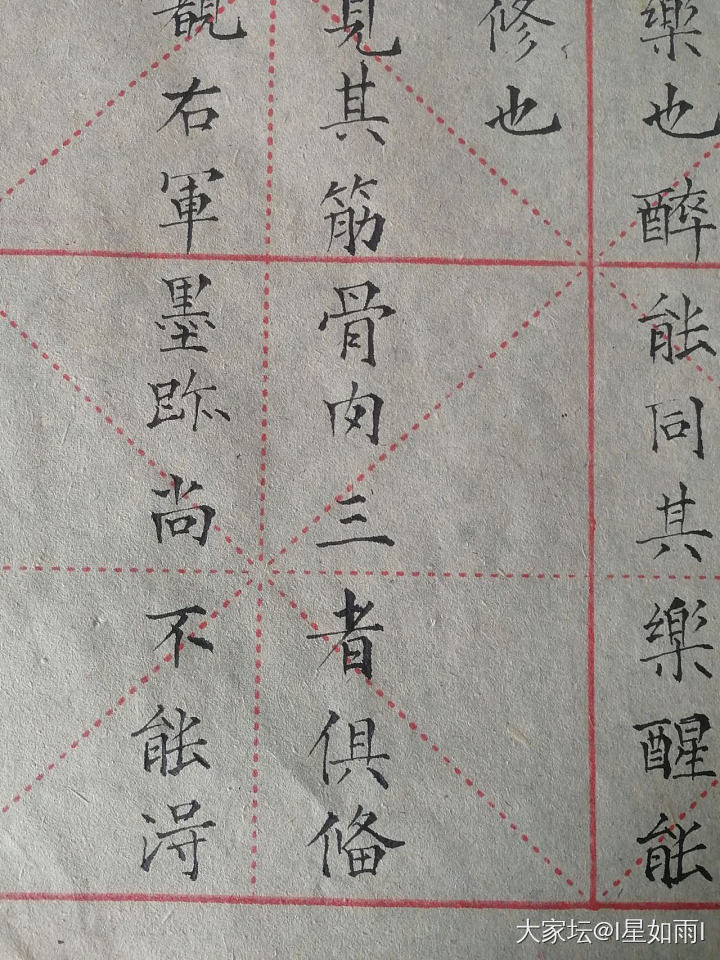 樂也醉能同其樂醒能
修也
見其筋骨肉三者俱俻
觀右軍墨跡尚不能淂
大家坛@I星如雨I